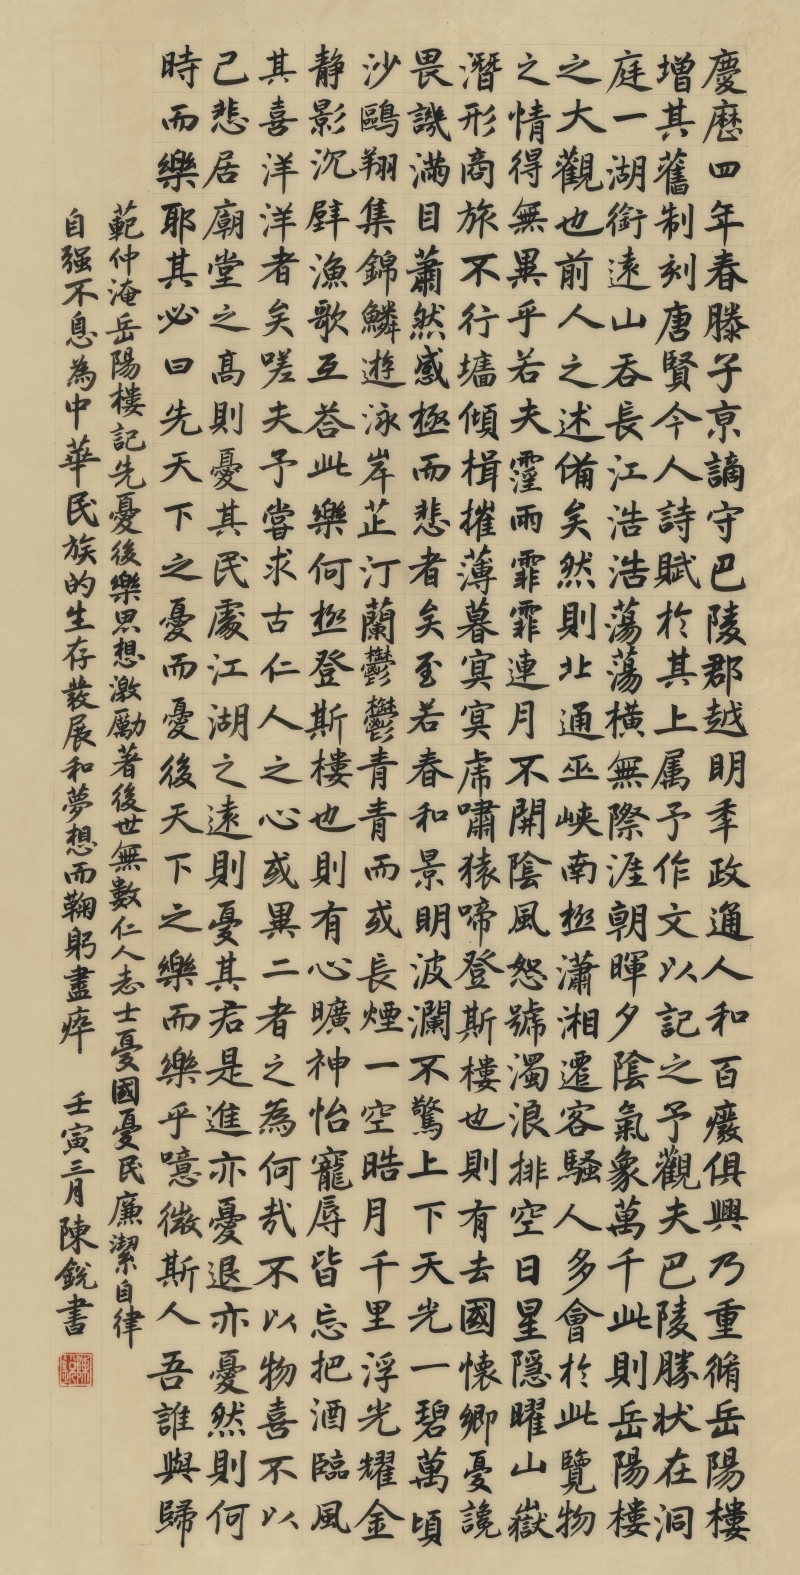 慶歷四年春滕子京謫守巴陵郡越明年政通人和百廢俱興乃重脩岳陽樓
增其舊制刻唐賢今人詩賦於其上属予作文以記之予觀夫巴陵勝状在洞
庭一湖銜遠山吞長江浩浩蕩蕩橫無際涯朝暉夕陰氣象萬千此則岳陽樓
之大觀也前人之述備矣然則北通巫峽南極瀟湘遷客騷人多會於此覽物
之情得無異乎若夫霪雨霏霏連月不開陰風怒號濁浪排空日星隱曜山嶽
潛形商旅不行墻傾楫摧薄暮冥冥虎嘯猿啼登斯樓也則有去國懷鄉憂讒
畏譏滿目蕭然感極而悲者矣至若春和景明波瀾不驚上下天光一碧萬頃
沙鷗翔集錦鱗遊泳岸芷汀蘭鬱鬱青青而或長煙一空皓月千里浮光耀金
靜影沉壁漁歌互荅此樂何極登斯樓也則有心曠神怡寵辱皆忘把酒臨風
其喜洋洋者矣嗟夫予嘗求古仁人之心或異二者之為何哉不以物喜不以
己悲居廟堂之高則憂其民處江湖之遠則憂其君是進亦憂退亦憂然則何
時而樂耶其必曰先天下之憂而憂後天下之樂而樂乎噫微斯人吾誰與歸
範仲淹岳陽樓記先憂後樂思想激勵著後世無數仁人志士憂國憂民廉潔自律
自強不息為中華民族的生存發展和夢想而鞠躬盡瘁 壬寅三月陳銳書